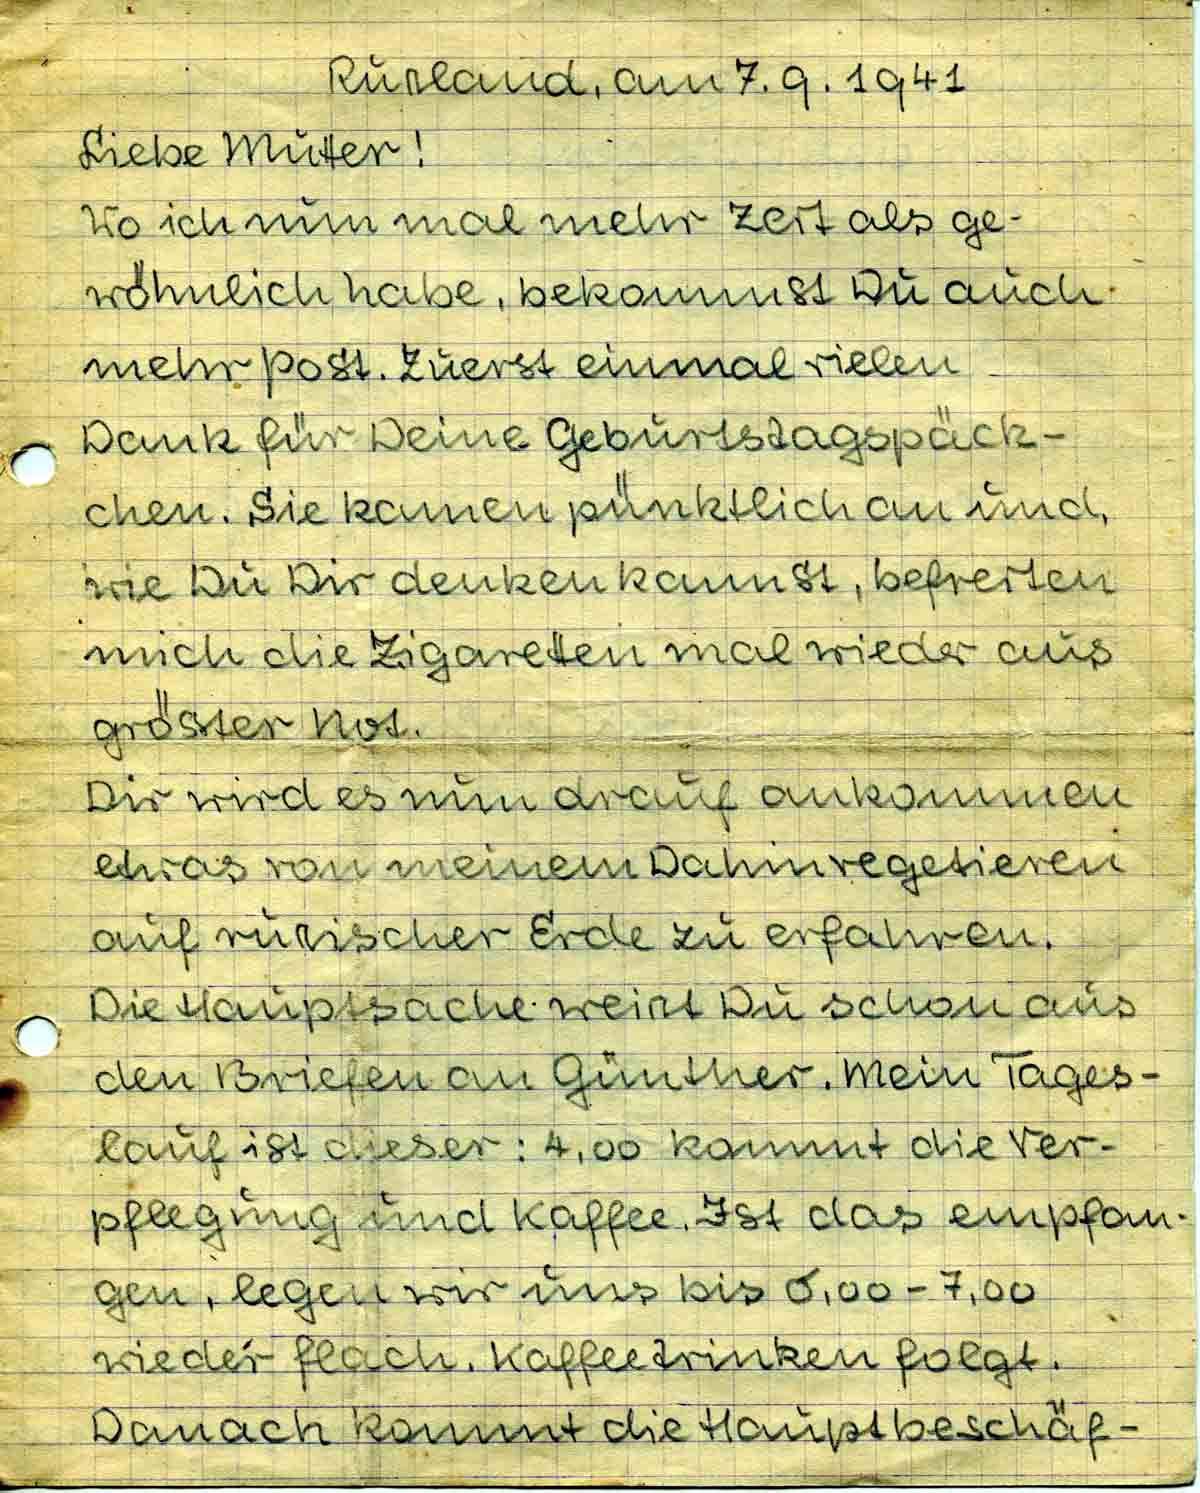 Rußland, am 7.9.1941
Liebe Mutter!
Wo ich nun mal mehr Zeit als ge-
wöhnlich habe, bekommst Du auch
mehr Post. Zuerst einmal vielen
Dank für Deine Geburtstagspäck-
chen. Sie kamen pünktlich an und,
wie Du Dir denken kannst, befreiten
mich die Zigaretten mal wieder aus
grösster Not.
Dir wird es nun drauf ankommen
etwas von meinem Dahinvegetieren
auf rußischer Erde zu erfahren.
Die Hauptsache weißt Du schon aus
den Briefen an Günther. Mein Tages-
lauf ist dieser: 4,00 kommt die Ver-
pflegung und Kaffee. Ist das empfan-
gen, legen wir uns bis 6,00 - 7,00
wieder flach. Kaffeetrinken folgt.
Danach kommt die Hauptbeschäf-